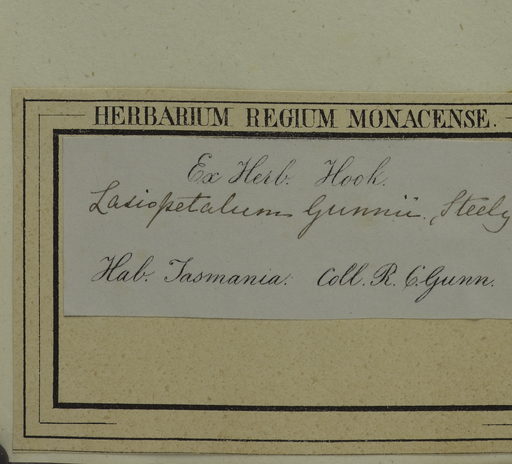 HERBARIUM REGIUM MONACENSE.
Ex Herb. Hook.
Lasiopetalum Gunnii, Steely
Hab. Tasmania. Coll. R. C. Gunn.